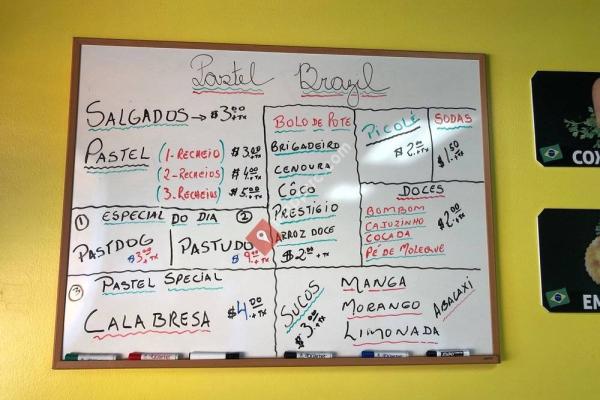 Pastel Brazil
SALGADOS → $3.00 +TX
PASTEL (1-RECHEIO) $3.00 +TX
(2-RECHEIOS) $4.00 +TX
(3-RECHEIOS) $5.00 +TX
BOLO DE POTE
BRIGADEIRO
CENOURA
CÔCO
PRESTÍGIO
ARROZ DOCE
$2.00 +TX
PICOLÉ
$2.00 +TX
SODAS
$1.50 +TX
DOCES
BOMBOM
CAJUZINHO
COCADA
PÉ DE MOLEQUE
$2.00 +TX
① ESPECIAL DO DIA ②
PASTDOG
$3.00 +TX
PASTUDO
$9.00 +TX
③ PASTEL SPECIAL
CALABRESA $4.00 +TX
SUCOS
$3.00 +TX
MANGA
MORANGO
LIMONADA
ABACAXI
COX
EM